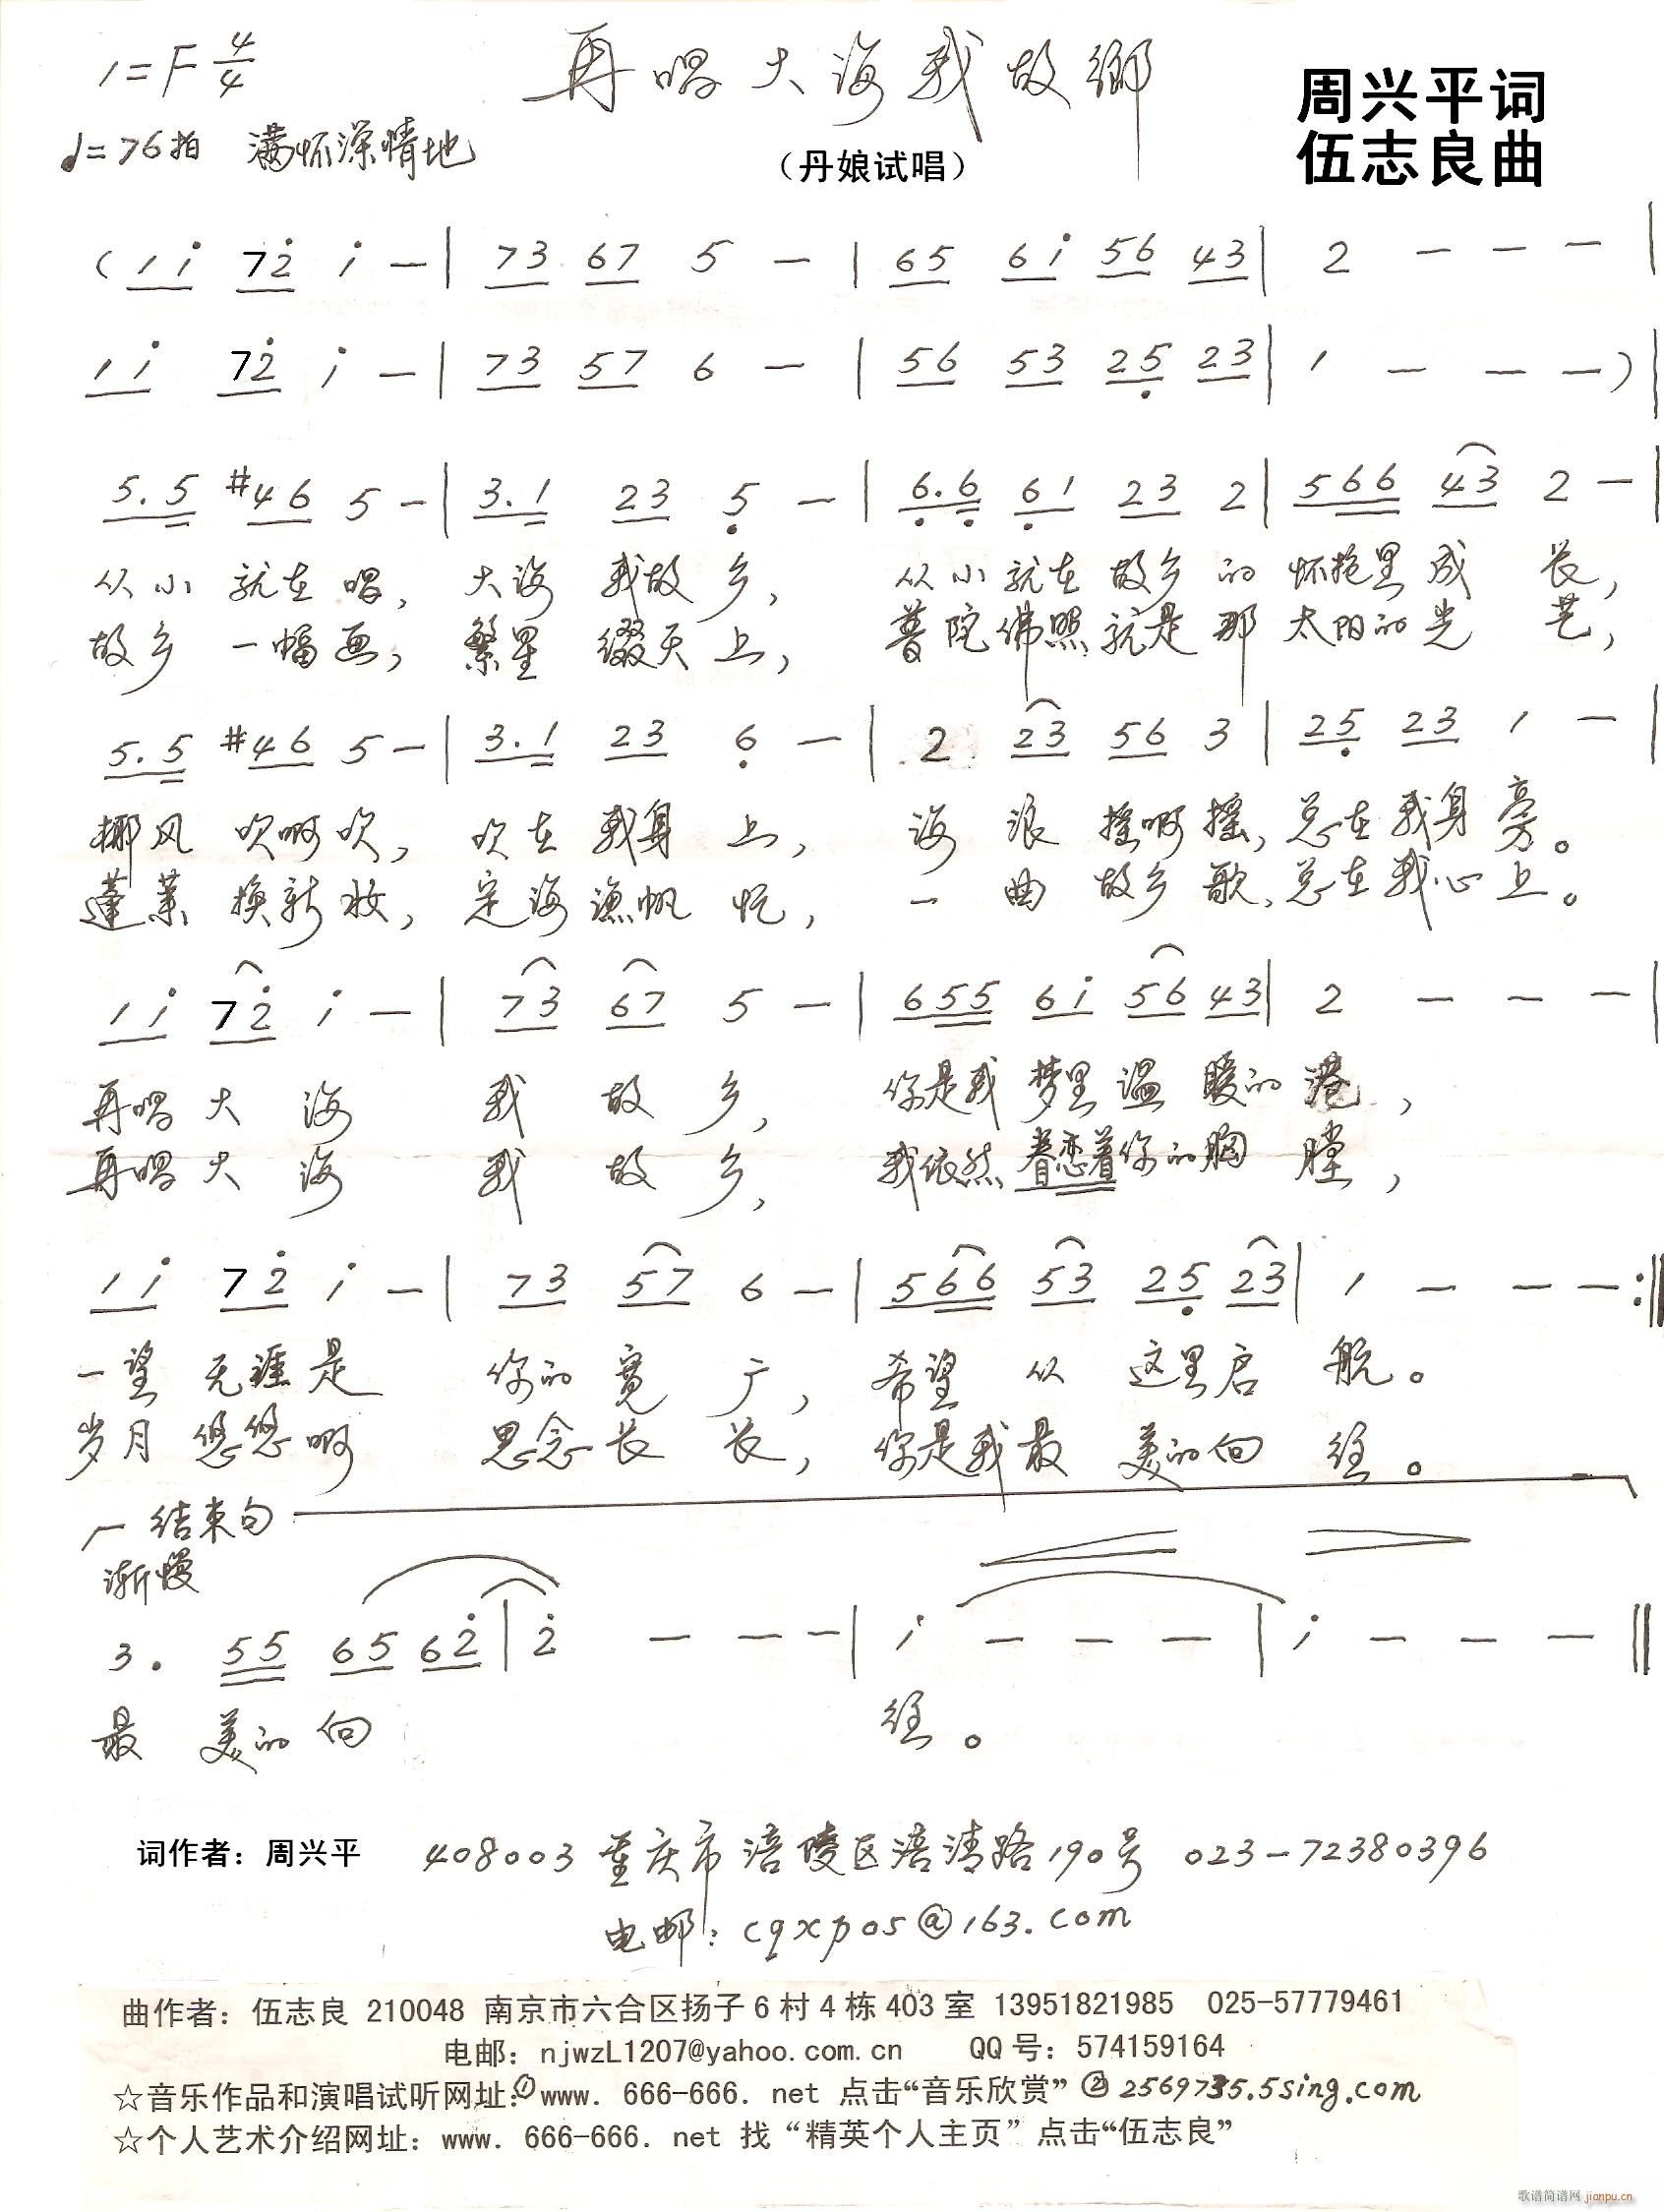 1=F 4/4
再唱大海我故鄉
周兴平词
♩=76拍 满怀深情地
（丹娘试唱）
伍志良曲
(1i̇ 72̇ i̇ — | 73 67 5 — | 65 6i̇ 56 43 | 2 — — — |
1i̇ 72̇ i̇ — | 73 57 6 — | 56 53 25̣ 23 | 1 — — —) |
5.5 #46 5 — | 3.1 23 5̣ — | 6̣.6̣ 6̣1 23 2 | 566 43 2 — |
从小就在唱，大海我故乡，从小就在故乡的怀抱里成长，
故乡一幅画，繁星缀天上，普陀佛照就是那太阳的光芒，
5.5 #46 5 — | 3.1 23 6̣ — | 2 23 56 3 | 25̣ 23 1 — |
椰风吹啊吹，吹在我身上，海浪摇啊摇，总在我身旁。
蓬莱换新妆，定海渔帆忙，一曲故乡歌，总在我心上。
1i̇ 72̇ i̇ — | 73 67 5 — | 655 6i̇ 56 43 | 2 — — — |
再唱大海我故乡，你是我梦里温暖的港，
再唱大海我故乡，我依然眷恋着你的胸膛，
1i̇ 72̇ i̇ — | 73 57 6 — | 566 53 25̣ 23 | 1 — — — :‖
一望无涯是你的宽广，希望从这里启航。
岁月悠悠啊思念长长，你是我最美的向往。
结束句
渐慢
3. 55 65 62̇ | 2̇ — — — | i̇ — — — | i̇ — — — ‖
最美的向往。
词作者：周兴平 408003 重庆市涪陵区涪清路190号 023-72380396
电邮：cqxp05@163.com
曲作者：伍志良 210048 南京市六合区扬子6村4栋403室 13951821985 025-57779461
电邮：njwzL1207@yahoo.com.cn QQ号：574159164
☆音乐作品和演唱试听网址：①www. 666-666. net 点击“音乐欣赏” ②2569735.5sing.com
☆个人艺术介绍网址：www. 666-666. net 找“精英个人主页”点击“伍志良”
歌谱简谱网 jianpu.cn